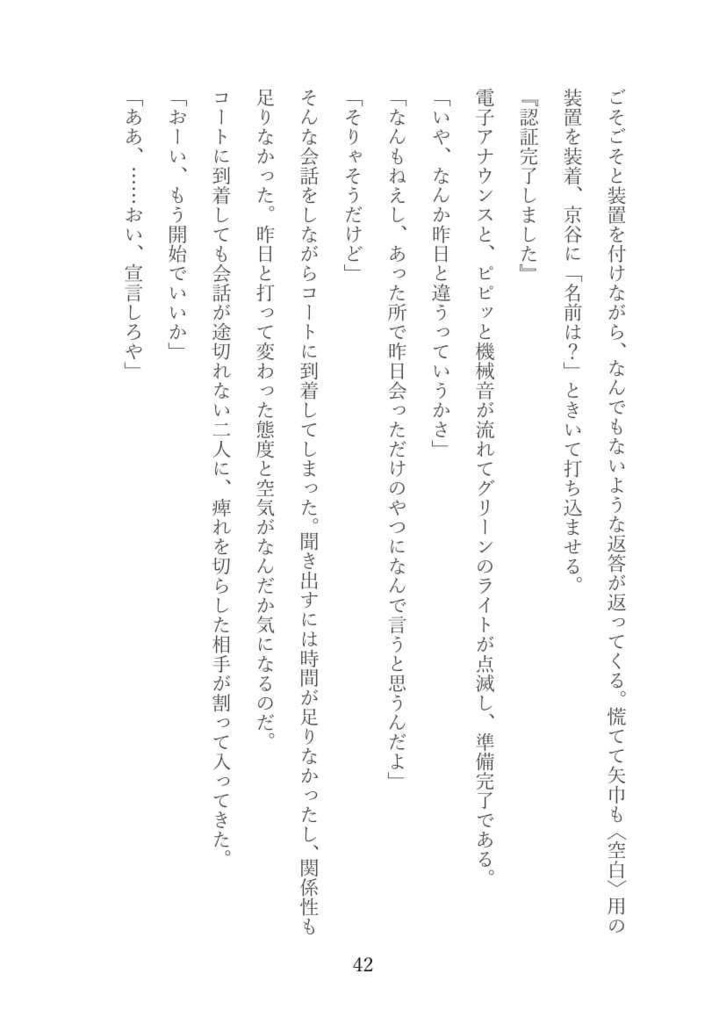 ごそごそと装置を付けながら、なんでもないような返答が返ってくる。慌てて矢巾も〈空白〉用の
装置を装着、京谷に「名前は？」ときいて打ち込ませる。
『認証完了しました』
電子アナウンスと、ピピッと機械音が流れてグリーンのライトが点滅し、準備完了である。
「いや、なんか昨日と違うっていうかさ」
「なんもねえし、あった所で昨日会っただけのやつになんで言うと思うんだよ」
「そりゃそうだけど」
そんな会話をしながらコートに到着してしまった。聞き出すには時間が足りなかったし、関係性も
足りなかった。昨日と打って変わった態度と空気がなんだか気になるのだ。
コートに到着しても会話が途切れない二人に、痺れを切らした相手が割って入ってきた。
「おーい、もう開始でいいか」
「ああ、……おい、宣言しろや」
42